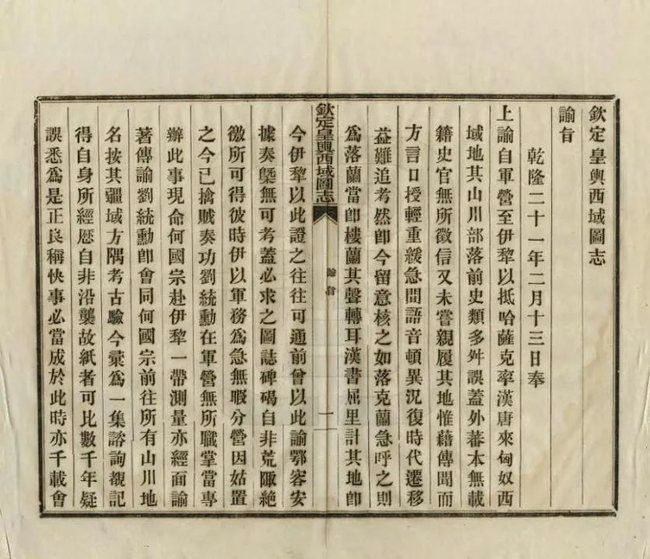 欽定皇輿西域圖志
諭旨
乾隆二十一年二月十三日奉
上諭自軍營至伊犂以抵哈薩克率漢唐來匈奴西
域地其山川部落前史類多舛誤蓋外蕃本無載
籍史官無所徵信又未嘗親履其地惟藉傳聞而
方言口授輕重緩急間語音頓異況復時代遷移
益難追考然卽今留意核之如落克蘭急呼之則
爲落蘭當卽樓蘭其聲轉耳漢書屈里計其地卽
欽定皇輿西域圖志
諭旨
一
今伊犂以此證之往往可通前曾以此諭鄂容安
據奏槩無可考蓋必求之圖誌碑碣自非荒陬絶
徼所可得彼時伊以軍務爲急無暇分營因姑置
之今已擒賊奏功劉統勳在軍營無所職掌當專
辦此事現命何國宗赴伊犂一帶測量亦經面諭
著傳諭劉統勳卽會同何國宗前往所有山川地
名按其疆域方隅考古驗今彙爲一集諮詢覩記
得自身所經歷自非沿襲故紙者可比數千年疑
誤悉爲是正良稱快事必當成於此時亦千載會